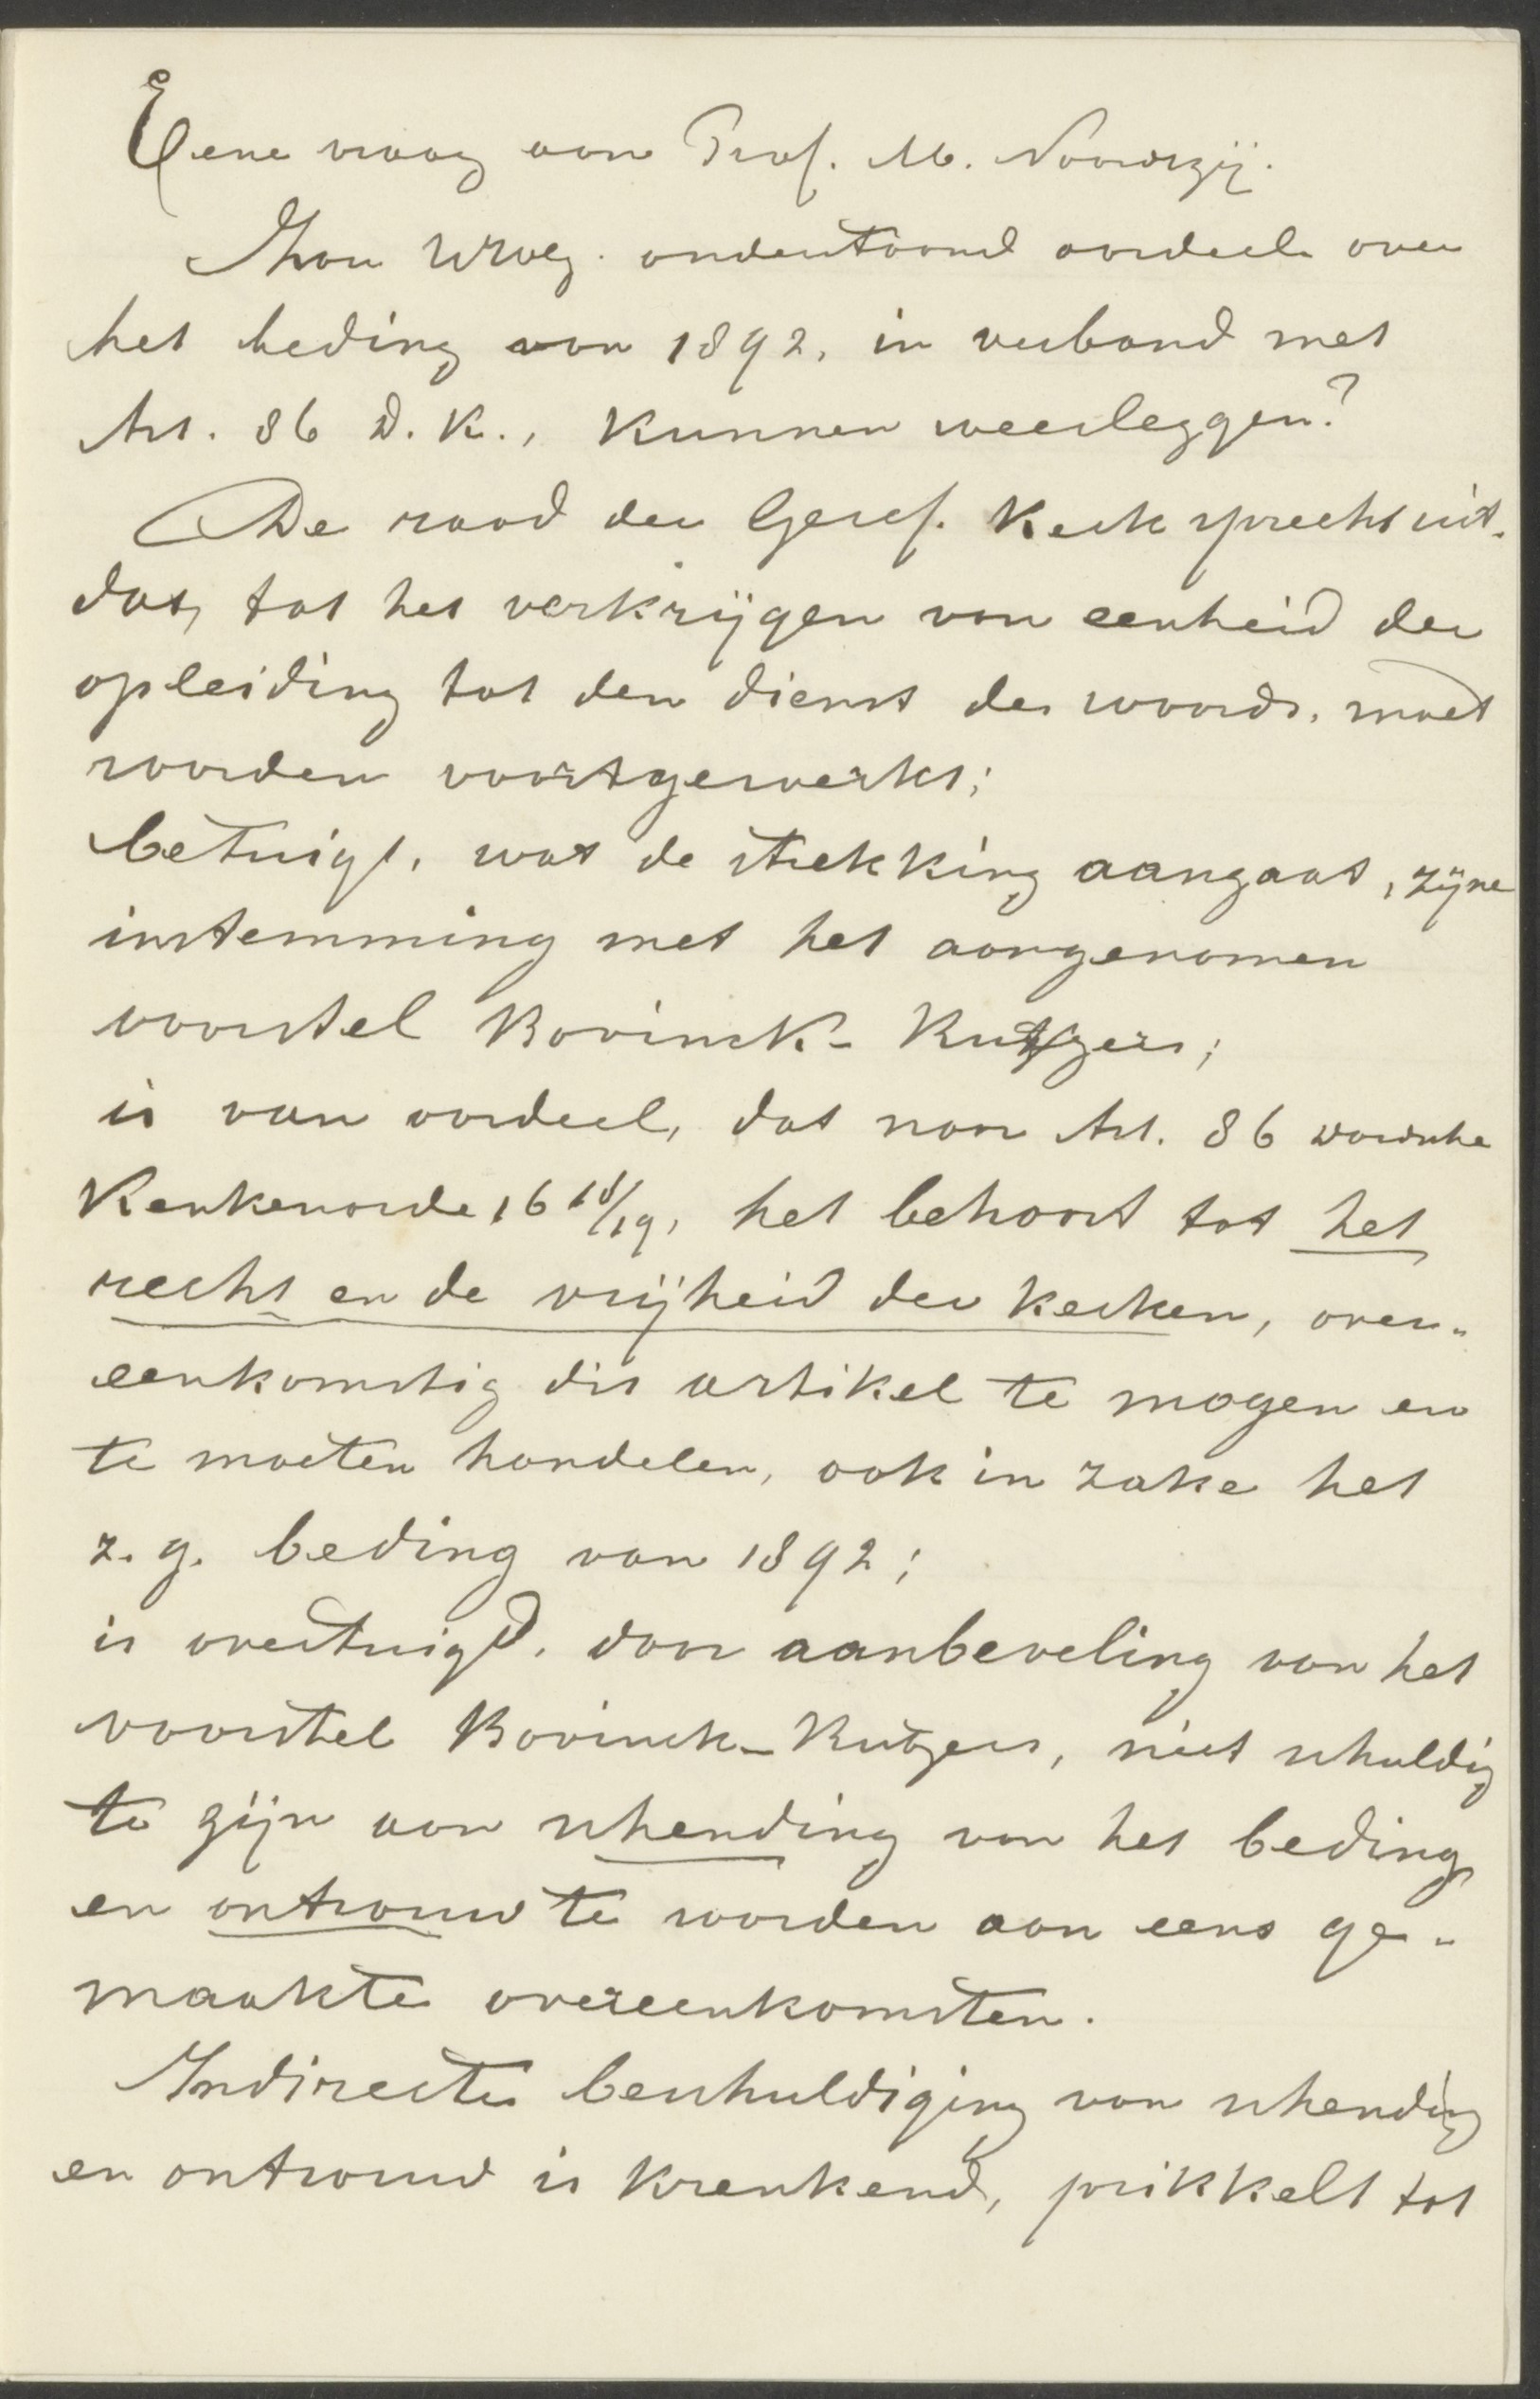 Eene vraag aan Prof. M. Noordzij.
Zou UHoog. onderstaand oordeel over
het beding van 1892, in verband met
Art. 86 D. K., kunnen weerleggen?
De raad der Geref. Kerk spreekt uit,
dat, tot het verkrijgen van eenheid der
opleiding tot den dienst des woords, moet
worden voortgewerkt;
betuigt, wat de strekking aangaat, zijne
instemming met het aangenomen
voorstel Bavinck-Rutgers;
is van oordeel, dat naar Art. 86 Dordsche
Kerkenorde 16 18/19, het behoort tot het
recht en de vrijheid der kerken, over-
eenkomstig dit artikel te mogen en
te moeten handelen, ook in zake het
z. g. beding van 1892;
is overtuigd, door aanbeveling van het
voorstel Bavinck-Rutgers, niet schuldig
te zijn aan schending van het beding
en ontrouw te worden aan eens ge-
maakte overeenkomsten.
Indirecte beschuldiging van schending
en ontrouw is krenkend, prikkelt tot